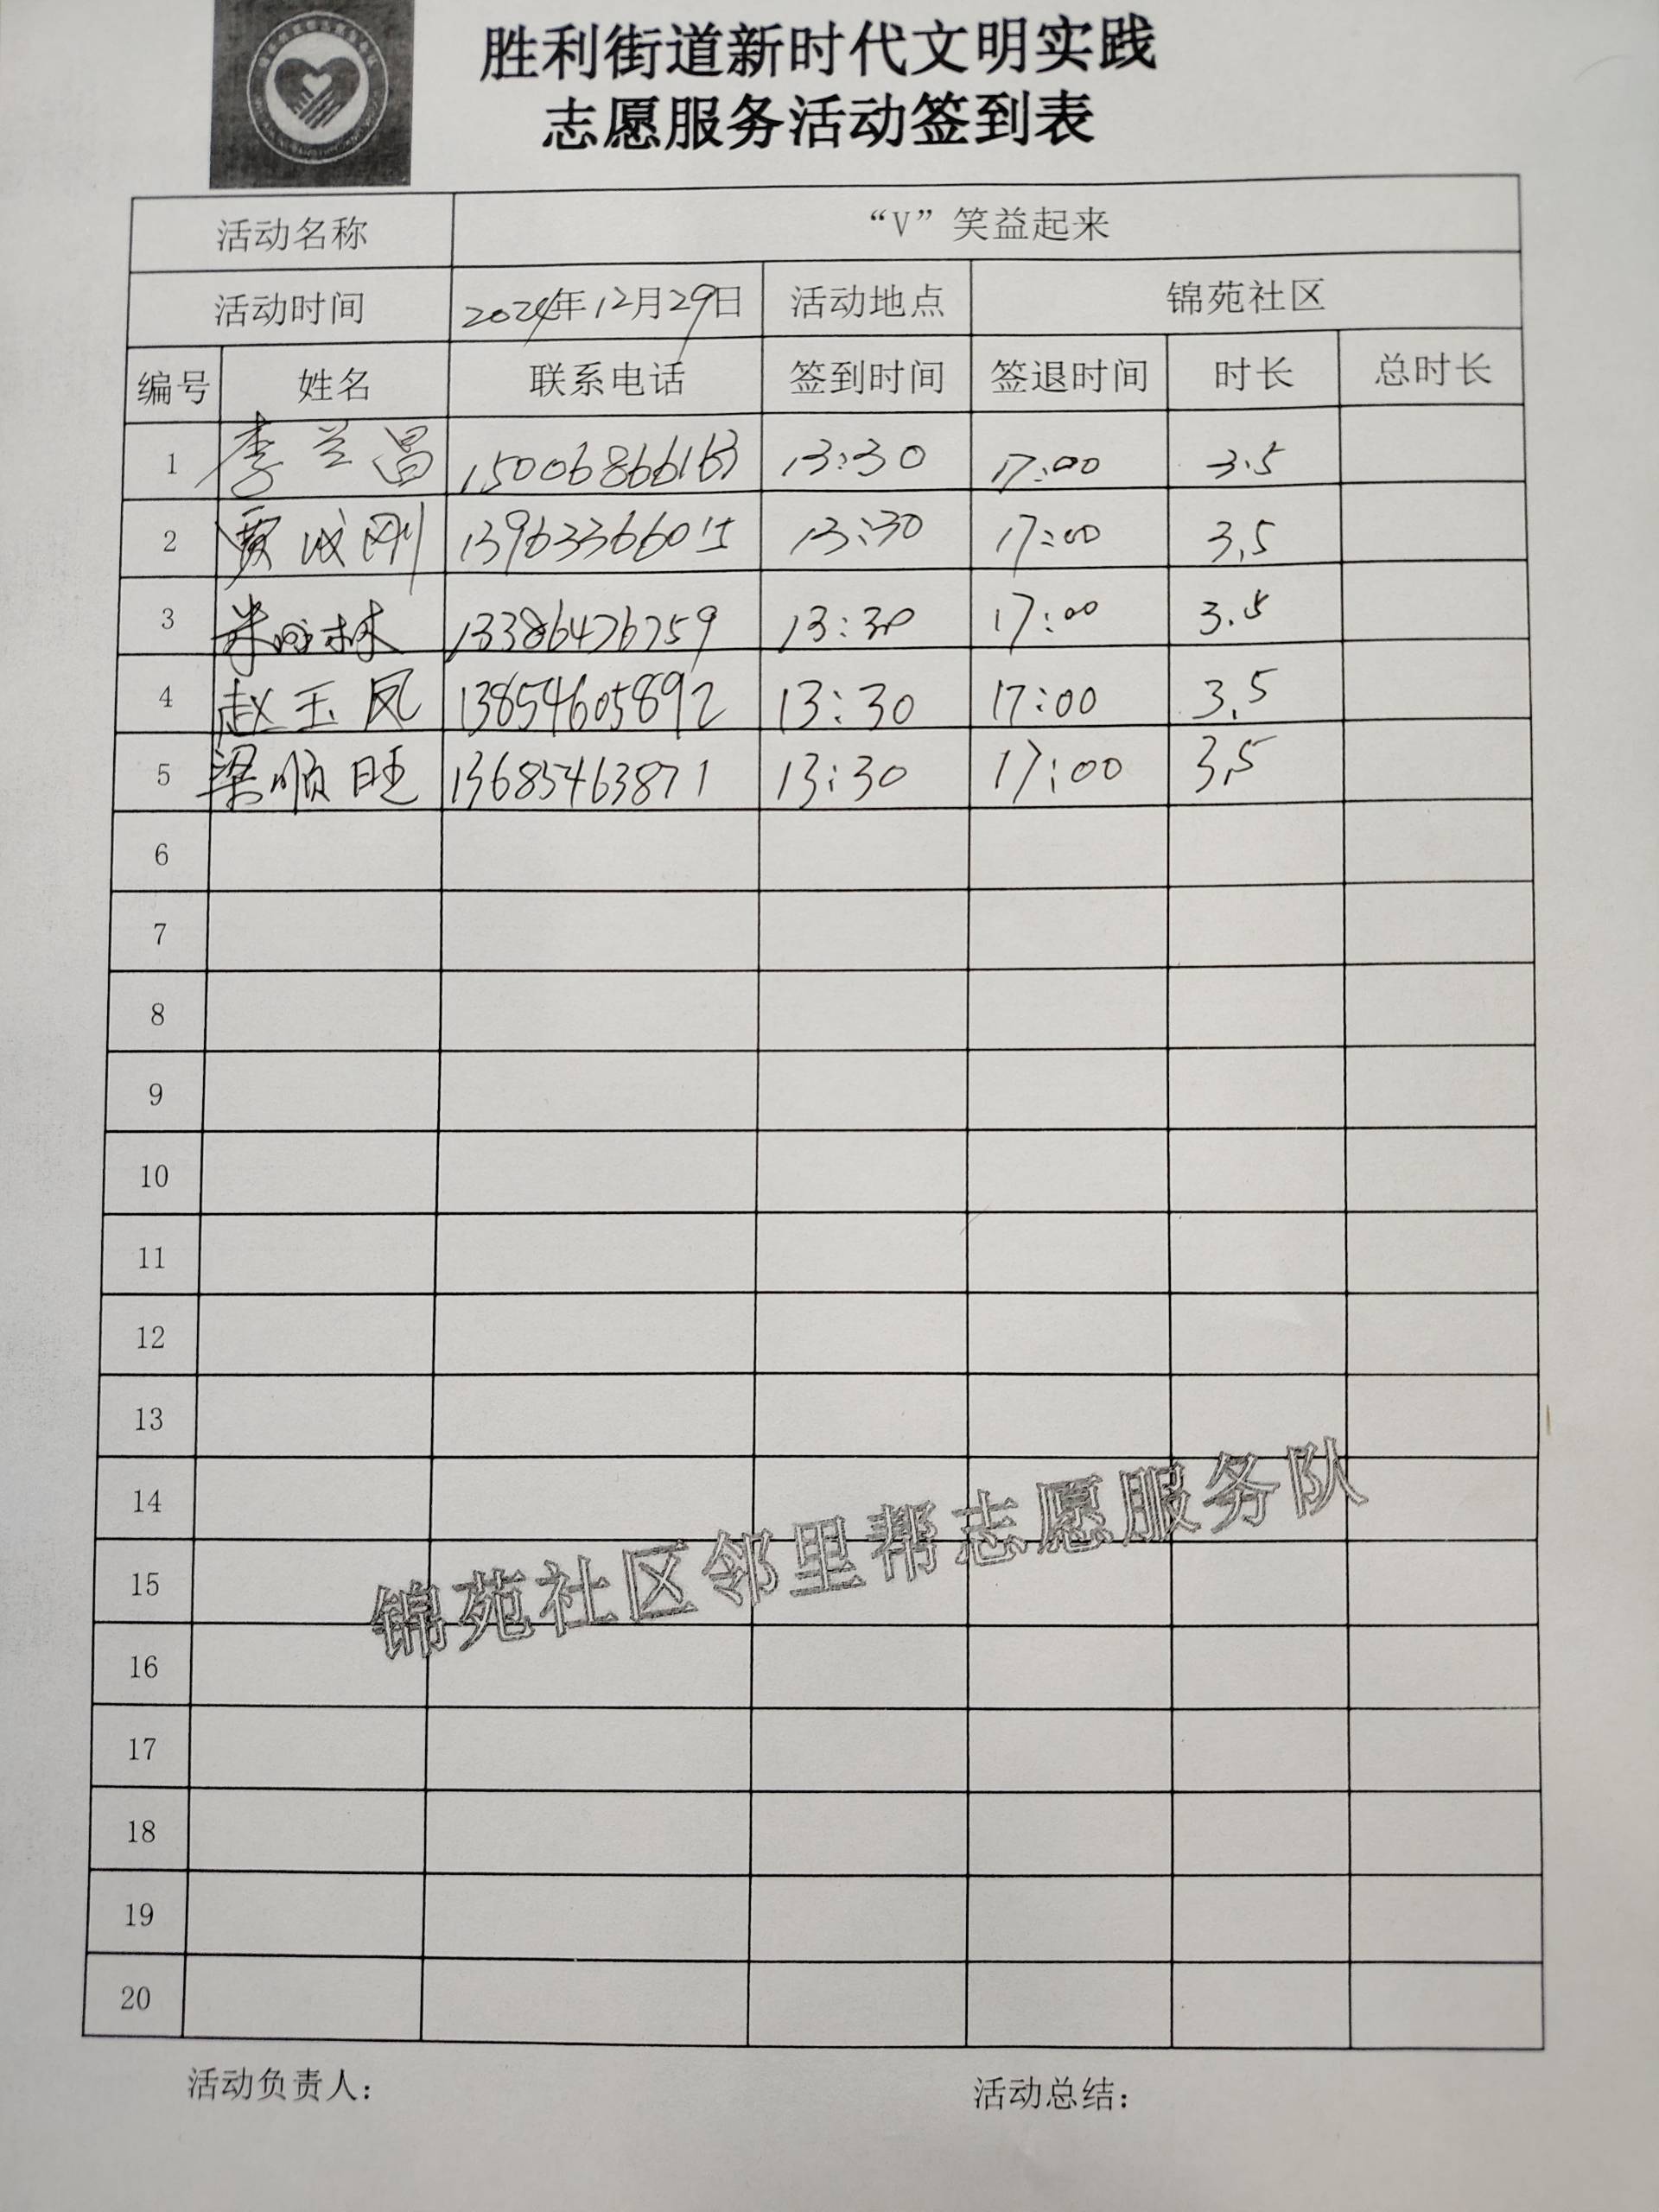 胜利街道新时代文明实践
志愿服务活动签到表
活动名称 “V”笑益起来
活动时间 2024年12月29日 活动地点 锦苑社区
编号 姓名 联系电话 签到时间 签退时间 时长 总时长
1 李兰昌 15006866163 13:30 17:00 3.5
2 贾成刚 13:30 17:00 3.5
3 13:30 17:00 3.5
4 赵玉凤 13854605892 13:30 17:00 3.5
5 梁顺旺 13685463871 13:30 17:00 3.5
6
7
8
9
10
11
12
13
14
15
16
17
18
19
20
锦苑社区邻里帮志愿服务队
活动负责人： 活动总结：